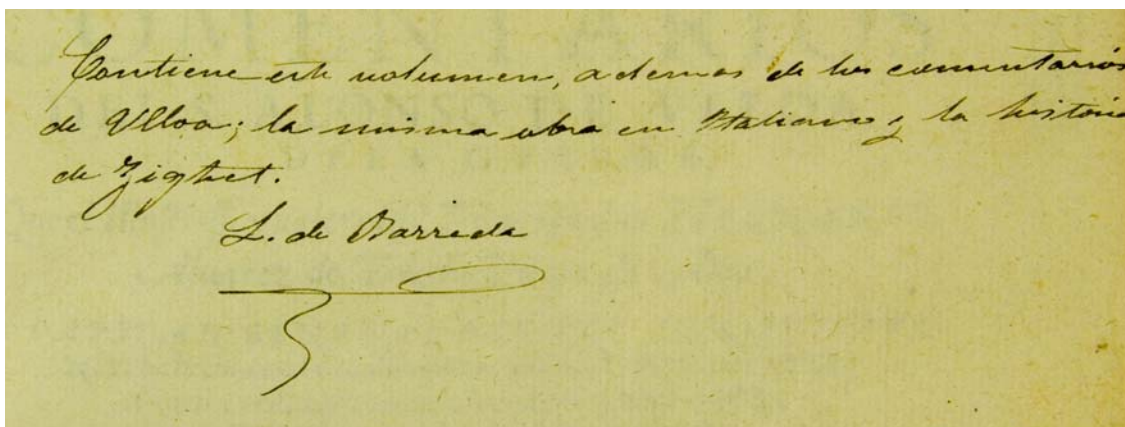 Contiene este volumen, ademas de los comentarios
de Ulloa; la misma obra en Italiano y la historia
de Zighet.
L. de Barreda